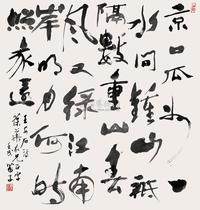 京口瓜洲一
水間鍾山祇
隔數重山春
風又綠江南
岸明月何時
照我還
王安石詩